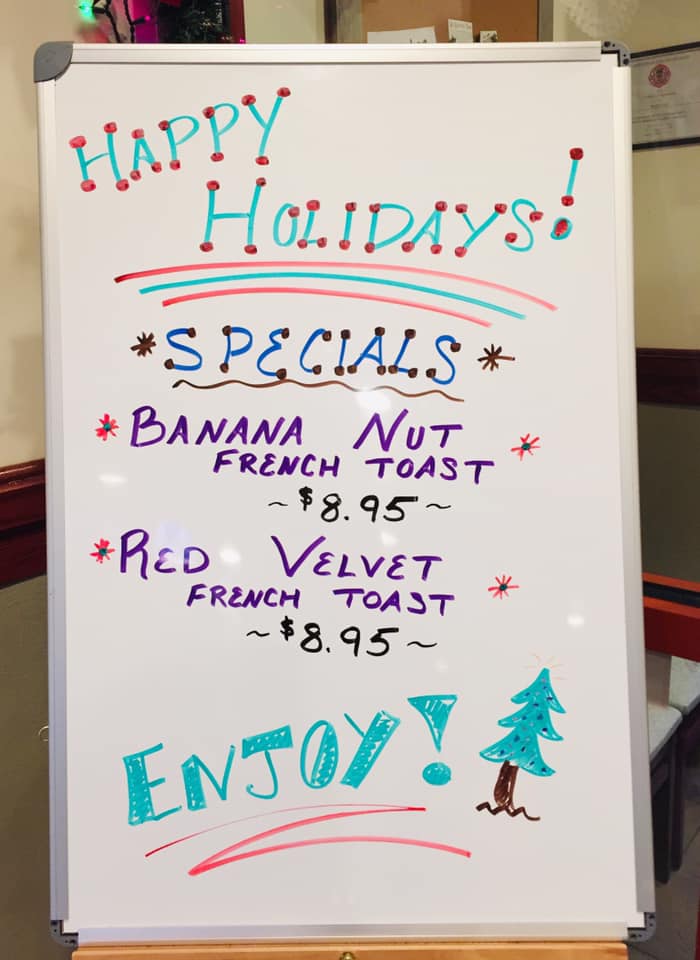 HAPPY
HOLIDAYS!
*SPECIALS*
* BANANA NUT *
FRENCH TOAST
~ $8.95 ~
* RED VELVET
FRENCH TOAST *
~ $8.95 ~
ENJOY!